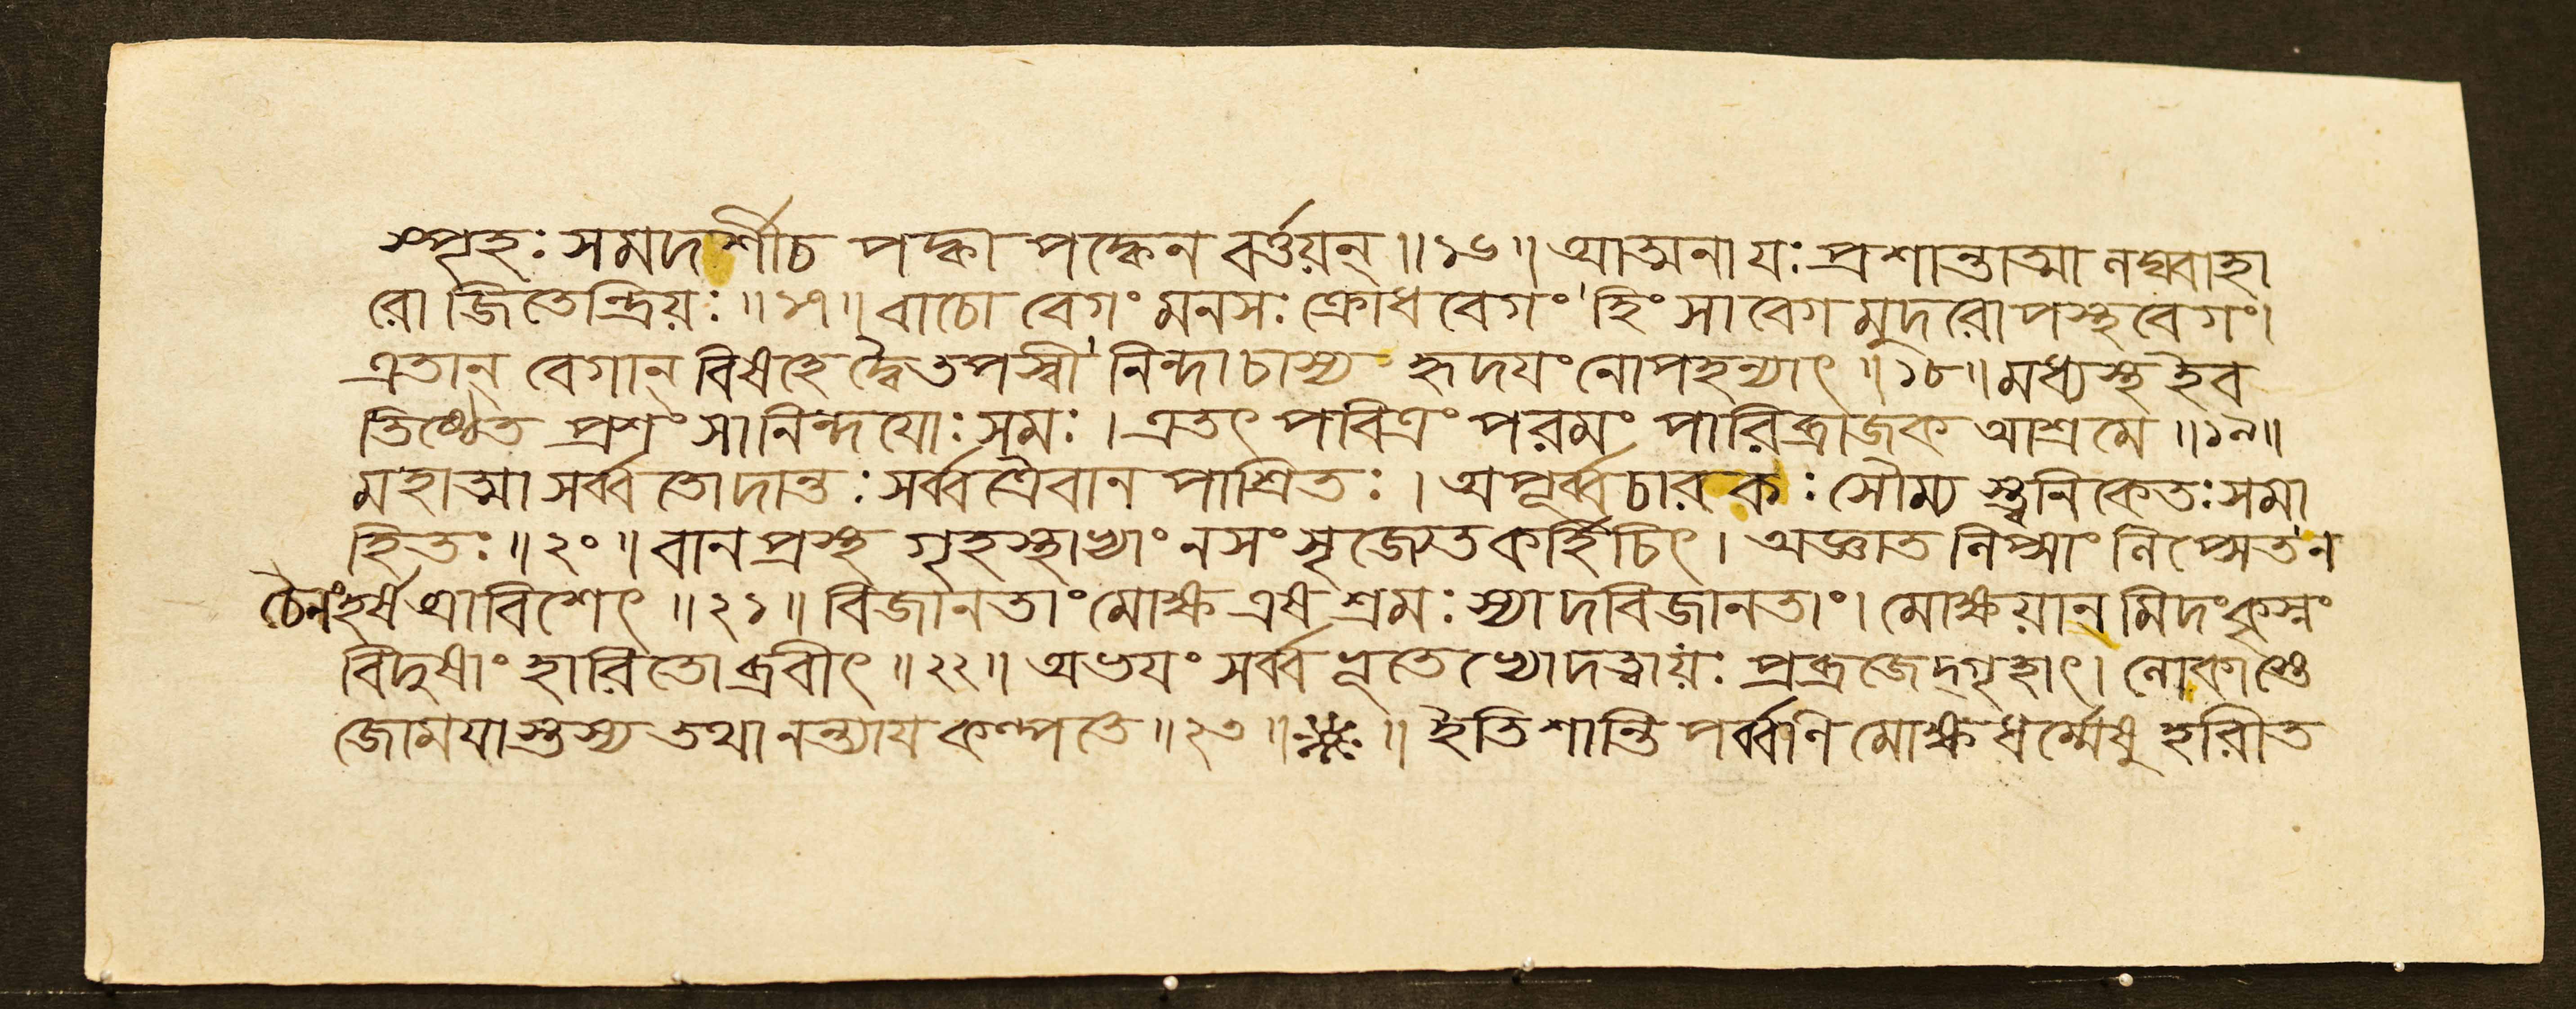 স্পৃহঃ সমদর্শীচ পদ্ধা পক্কেন বর্ত্তয়ন্ ॥১৬॥ আত্মনা যঃ প্রশান্তাত্মা নঘ্ববাহা
রো জিতেন্দ্রিয়ঃ ॥১৭॥ বাচো বেগং মনসঃ ক্রোধ বেগং হিংসা বেগ মুদরোপস্থ বেগং।
এতান্ বেগান্ বিষহে দ্বৈতপস্বী নিন্দা চাস্য হৃদয়ং নোপহন্যাৎ ॥১৮॥ মধ্যস্থ ইব
তিষ্ঠেত প্রশংসানিন্দযোঃ সমঃ । এতৎ পবিত্রং পরমং পারিব্রাজক আশ্রমে ॥১৯॥
মহাত্মা সর্ব্বতোদান্তঃ সর্ব্বত্রৈবান পাশ্রিতঃ । অপূর্ব্ব চারকঃ সৌম্য স্ত্বনিকেতঃ সমা
হিতঃ ॥২০॥ বানপ্রস্থ গৃহস্থাভ্যাং নসংসৃজ্যেত কর্হিচিৎ । অজ্ঞাত নিপ্সাং নিপ্সেত ন
চৈনং হর্ষ আবিশেৎ ॥২১॥ বিজানতাং মোক্ষ এষ শ্রমঃ স্যাদবিজানতাং। মোক্ষয়ান মিদং কৃৎস্নং
বিদুষাং হারিতোব্রবীৎ ॥২২॥ অভযং সর্ব্ব ভূতেভ্যো দত্ত্বায়ঃ প্রব্রজেদ্গৃহাৎ। লোকাস্তে
জোময়াস্তস্য তথানন্ত্যায় কল্পতে ॥২৩॥ ॥ ইতি শান্তি পর্ব্বনি মোক্ষ ধর্ম্মেষু হরীত